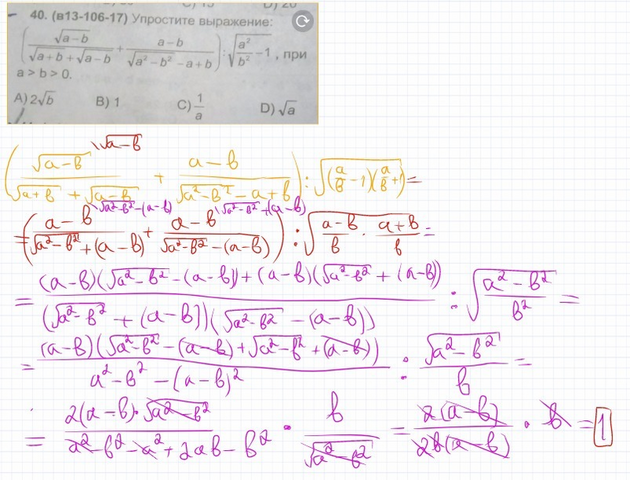 40. (в13-106-17) Упростите выражение:
(√(a-b)/(√(a+b)+√(a-b)) + (a-b)/(√(a²-b²)-a+b)) : √(a²/b² -1), при
a > b > 0.
A) 2√b B) 1 C) 1/a D) √a
(√(a-b)/(√(a+b)+√(a-b)) \√(a-b) + (a-b)/(√(a²-b²)-a+b)) : √((a/b -1)(a/b +1)) =
=((a-b)/(√(a²-b²)+(a-b)) \√(a²-b²)-(a-b) + (a-b)/(√(a²-b²)-(a-b)) \√(a²-b²)+(a-b)) : √((a-b)/b · (a+b)/b) =
= ((a-b)(√(a²-b²)-(a-b))+(a-b)(√(a²-b²)+(a-b)))/((√(a²-b²)+(a-b))(√(a²-b²)-(a-b))) : √((a²-b²)/b²) =
= ((a-b)(√(a²-b²)-(a-b)+√(a²-b²)+(a-b)))/(a²-b²-(a-b)²) : √(a²-b²)/b =
= (2(a-b)·√(a²-b²))/(a²-b²-a²+2ab-b²) · b/√(a²-b²) = (2(a-b))/(2b(a-b)) · b = 1